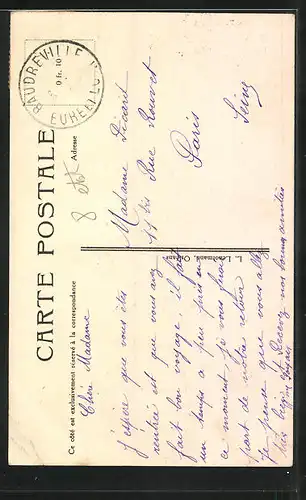 CARTE POSTALE
Ce côté est exclusivement réservé à la correspondance
Adresse
BAUDREVILLE
EURE ET L
0 fr. 10
8
Chère Madame
J'espère que vous êtes
rentrée et que vous avez
fait bon voyage, il fait
un temps à peu près en
ce moment, je vous ferai
part de notre retour
je pense que vous allez
très bien. Recevez nos bonnes amitiés
Madame Sicard
rue Rouvet
Paris
Seine